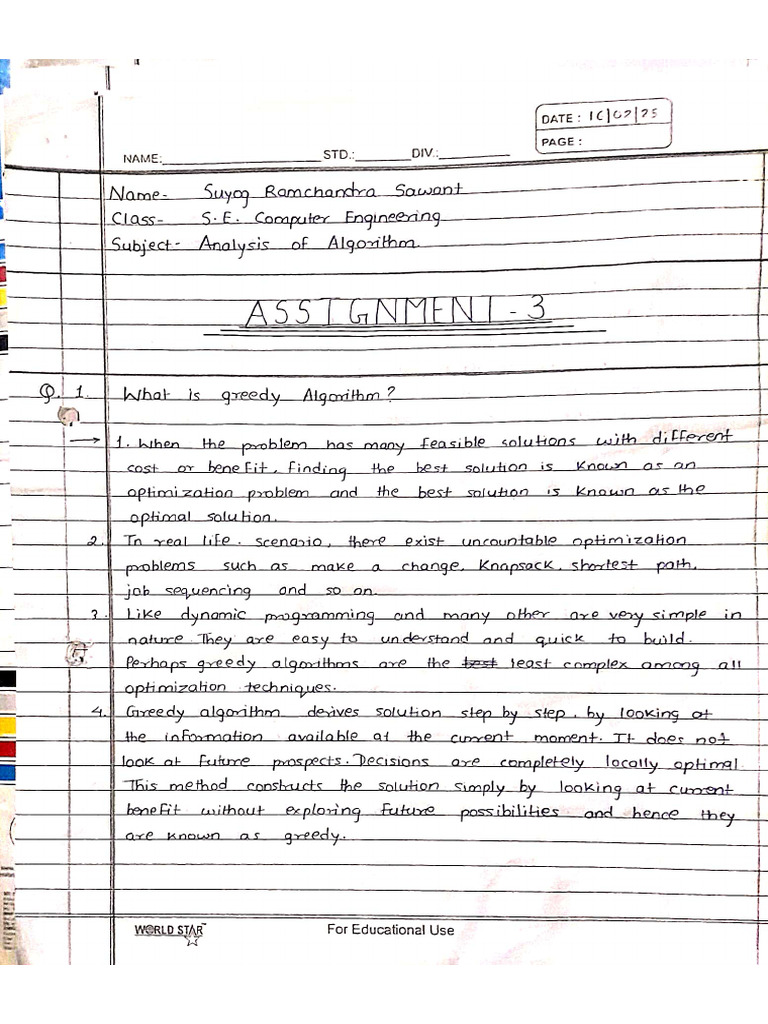 DATE : 10/02/25
PAGE :
NAME: STD.: DIV.:
Name- Suyog Ramchandra Sawant
Class- S.E. Computer Engineering
Subject- Analysis of Algorithm.
ASSIGNMENT - 3
Q. 1. What is greedy Algorithm?
→ 1. When the problem has many feasible solutions with different
cost or benefit, finding the best solution is known as an
optimization problem and the best solution is known as the
optimal solution.
2. In real life. scenario, there exist uncountable optimization
problems such as make a change, Knapsack, shortest path,
job sequencing and so on.
3. Like dynamic programming and many other are very simple in
nature. They are easy to understand and quick to build.
Perhaps greedy algorithms are the least complex among all
optimization techniques.
4. Greedy algorithm derives solution step by step, by looking at
the information available at the current moment. It does not
look at future prospects. Decisions are completely locally optimal.
This method constructs the solution simply by looking at current
benefit without exploring future possibilities and hence they
are known as greedy.
WORLD STAR™ For Educational Use